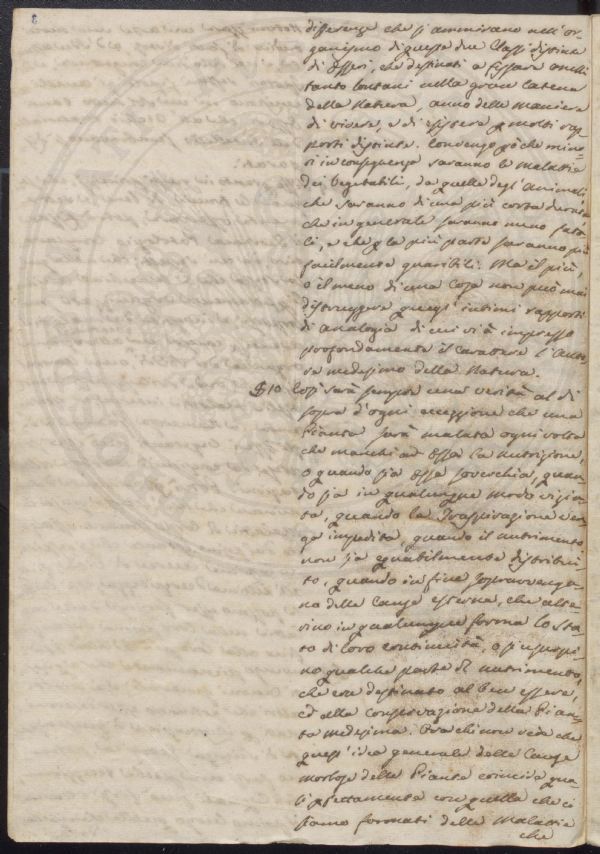 8
differenze che si ammirano nell' or-
ganismo di queste due Classi distinte
di Esseri, che destinati a fissare anelli
tanto lontani nella gran catena
della Natura, anno delle maniere
di vivere, e di esistere p molti rap
porti distinte. Convengo pò che mino-
ri in conseguenza saranno le Malattie
dei Vegetabili, da quelle degl' animali,
che saranno di una più corta durata
che in generale saranno meno fata
li, e che p la più parte saranno più
facilmente guaribili. Ma il più,
o il meno di una cosa non può mai
distruggere quegl' intimi rapporti
di analogia di cui vi à impresso
profondamente il carattere l'Auto
re medesimo della Natura.
§ 10 Così sarà sempre una verità al di
sopra d'ogni eccezzione che una
Pianta sarà malata ogni volta
che manchi ad Essa la nutrizione,
o quando sia essa soverchia, quan
do sia in qualunque modo vizia
ta, quando la Traspirazione ven
ga impedita, quando il nutrimento
non sia equabilmente distribui-
to, quando in fine sopravvenga-
no delle Cause esterne, che alte-
rino in qualunque forma lo sta-
to di loro continuità, o si usurpi-
no qualche parte di nutrimento,
che era destinato al ben essere,
ed alla conservazione della Pian-
ta medesima. Ora chi non vede che
quest' idea generale delle Cause
morbose delle Piante coincida qua
si pfettamente con quella che ci
siamo formati delle Malattie
che